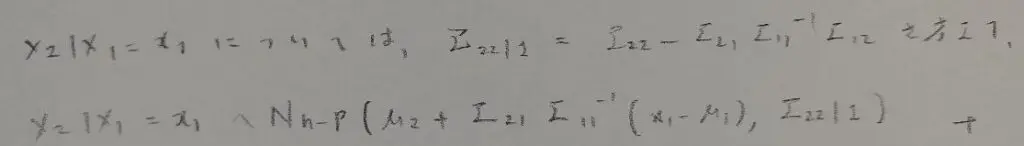 X₂|X₁=x₁ については, Σ₂₂|₁ = Σ₂₂ - Σ₂₁ Σ₁₁⁻¹ Σ₁₂ を考えて,
X₂|X₁=x₁ ~ Nn-p (μ₂ + Σ₂₁ Σ₁₁⁻¹ (x₁-μ₁), Σ₂₂|₁)